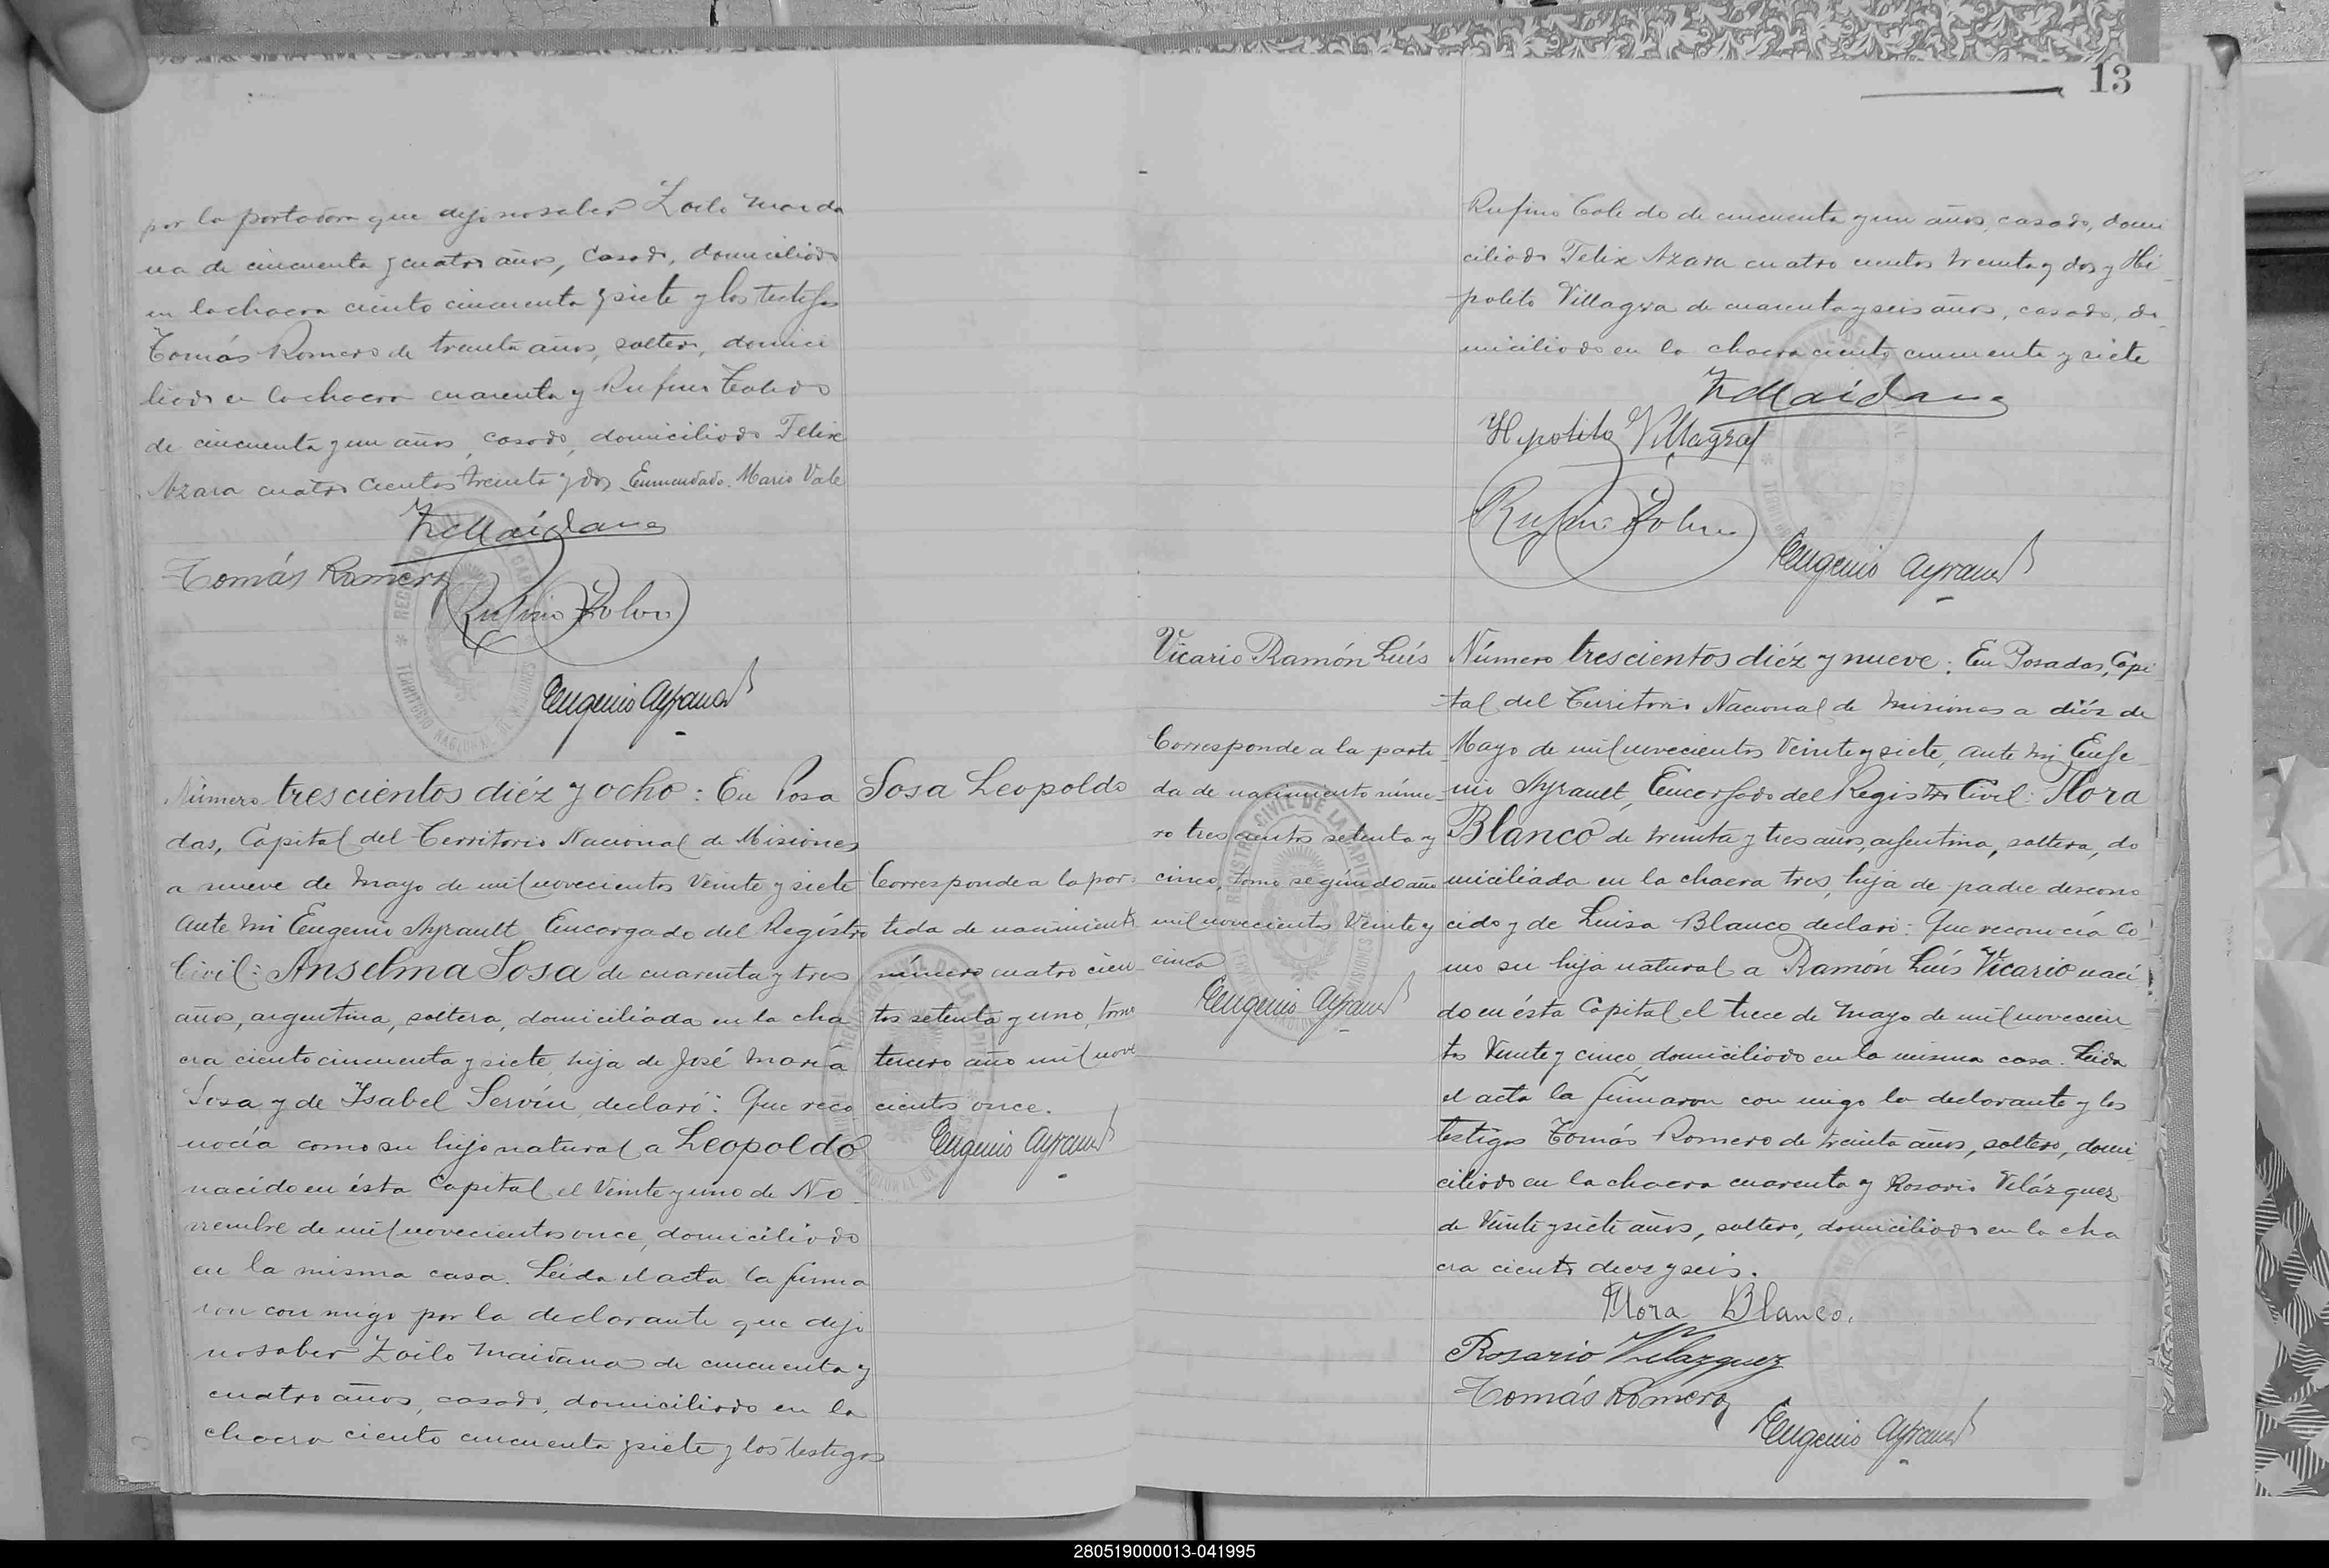 por la portadora que dijo no saber Zoilo Maida
na de cincuenta y cuatro años, casado, domiciliado
en la chacra ciento cincuenta y siete y los testigos
Tomás Romero de treinta años, soltero, domici
liado en la chacra cuarenta y Rufino Toledo
de cincuenta y un años, casado, domiciliado Felix
Azara cuatro cientos treinta y dos Enmendado. Mario Vale
ZMaidana
Tomás Romero
Rufino Toledo
Eugenio Ayrault
Número trescientos diéz y ocho: En Posa
das, Capital del Territorio Nacional de Misiones
a nueve de Mayo de mil novecientos veinte y siete
ante mi Eugenio Ayrault Encargado del Regístro
Civil: Anselma Sosa de cuarenta y tres
años, argentina, soltera, domiciliada en la cha
cra ciento cincuenta y siete, hija de José María
Sosa y de Isabel Servín, declaró: Que reco
nocía como su hijo natural a Leopoldo
nacido en ésta Capital el veinte y uno de No
viembre de mil novecientos once, domiciliado
en la misma casa. Leida el acta la firma
ron con migo por la declarante que dijo
no saber Zoilo Maidana de cincuenta y
cuatro años, casado, domiciliado en la
chacra ciento cincuenta y siete y los testigos
Sosa Leopoldo
Corresponde a la par
tida de nacimiento
número cuatro cien
tos setenta y uno, tomo
tercero año mil nove
cientos once.
Eugenio Ayrault
13
Rufino Toledo de cincuenta y un años, casado, domi
ciliado Felix Azara cuatro cientos treinta y dos y Hi
polito Villagra de cuarenta y seis años, casado, do
miciliado en la chacra ciento cincuenta y siete
ZMaidana
Hipolito Villagra
Rufino Toledo
Eugenio Ayrault
Vicario Ramón Luís
Corresponde a la parti
da de nacimiento núme
ro tres cientos setenta y
cinco, tomo segundo año
mil novecientos veinte y
cinco
Eugenio Ayrault
Número trescientos diéz y nueve: En Posadas, Capi
tal del Territorio Nacional de Misiones a diéz de
Mayo de mil novecientos veinte y siete, ante mi Euge
nio Ayrault, Encargado del Registro Civil: Flora
Blanco de treinta y tres años, argentina, soltera, do
miciliada en la chacra tres, hija de padre descono
cido y de Luisa Blanco declaró: Que reconocía co
mo su hijo natural a Ramón Luís Vicario naci
do en ésta Capital el trece de Mayo de mil novecien
tos veinte y cinco, domiciliado en la misma casa. Leida
el acta la firmaron con migo la declarante y los
testigos Tomás Romero de treinta años, soltero, domi
ciliado en la chacra cuarenta y Rosario Velázquez
de veinte y siete años, soltero, domiciliado en la cha
cra ciento diez y seis.
Flora Blanco.
Rosario Velazquez
Tomás Romero
Eugenio Ayrault
280519000013-041995